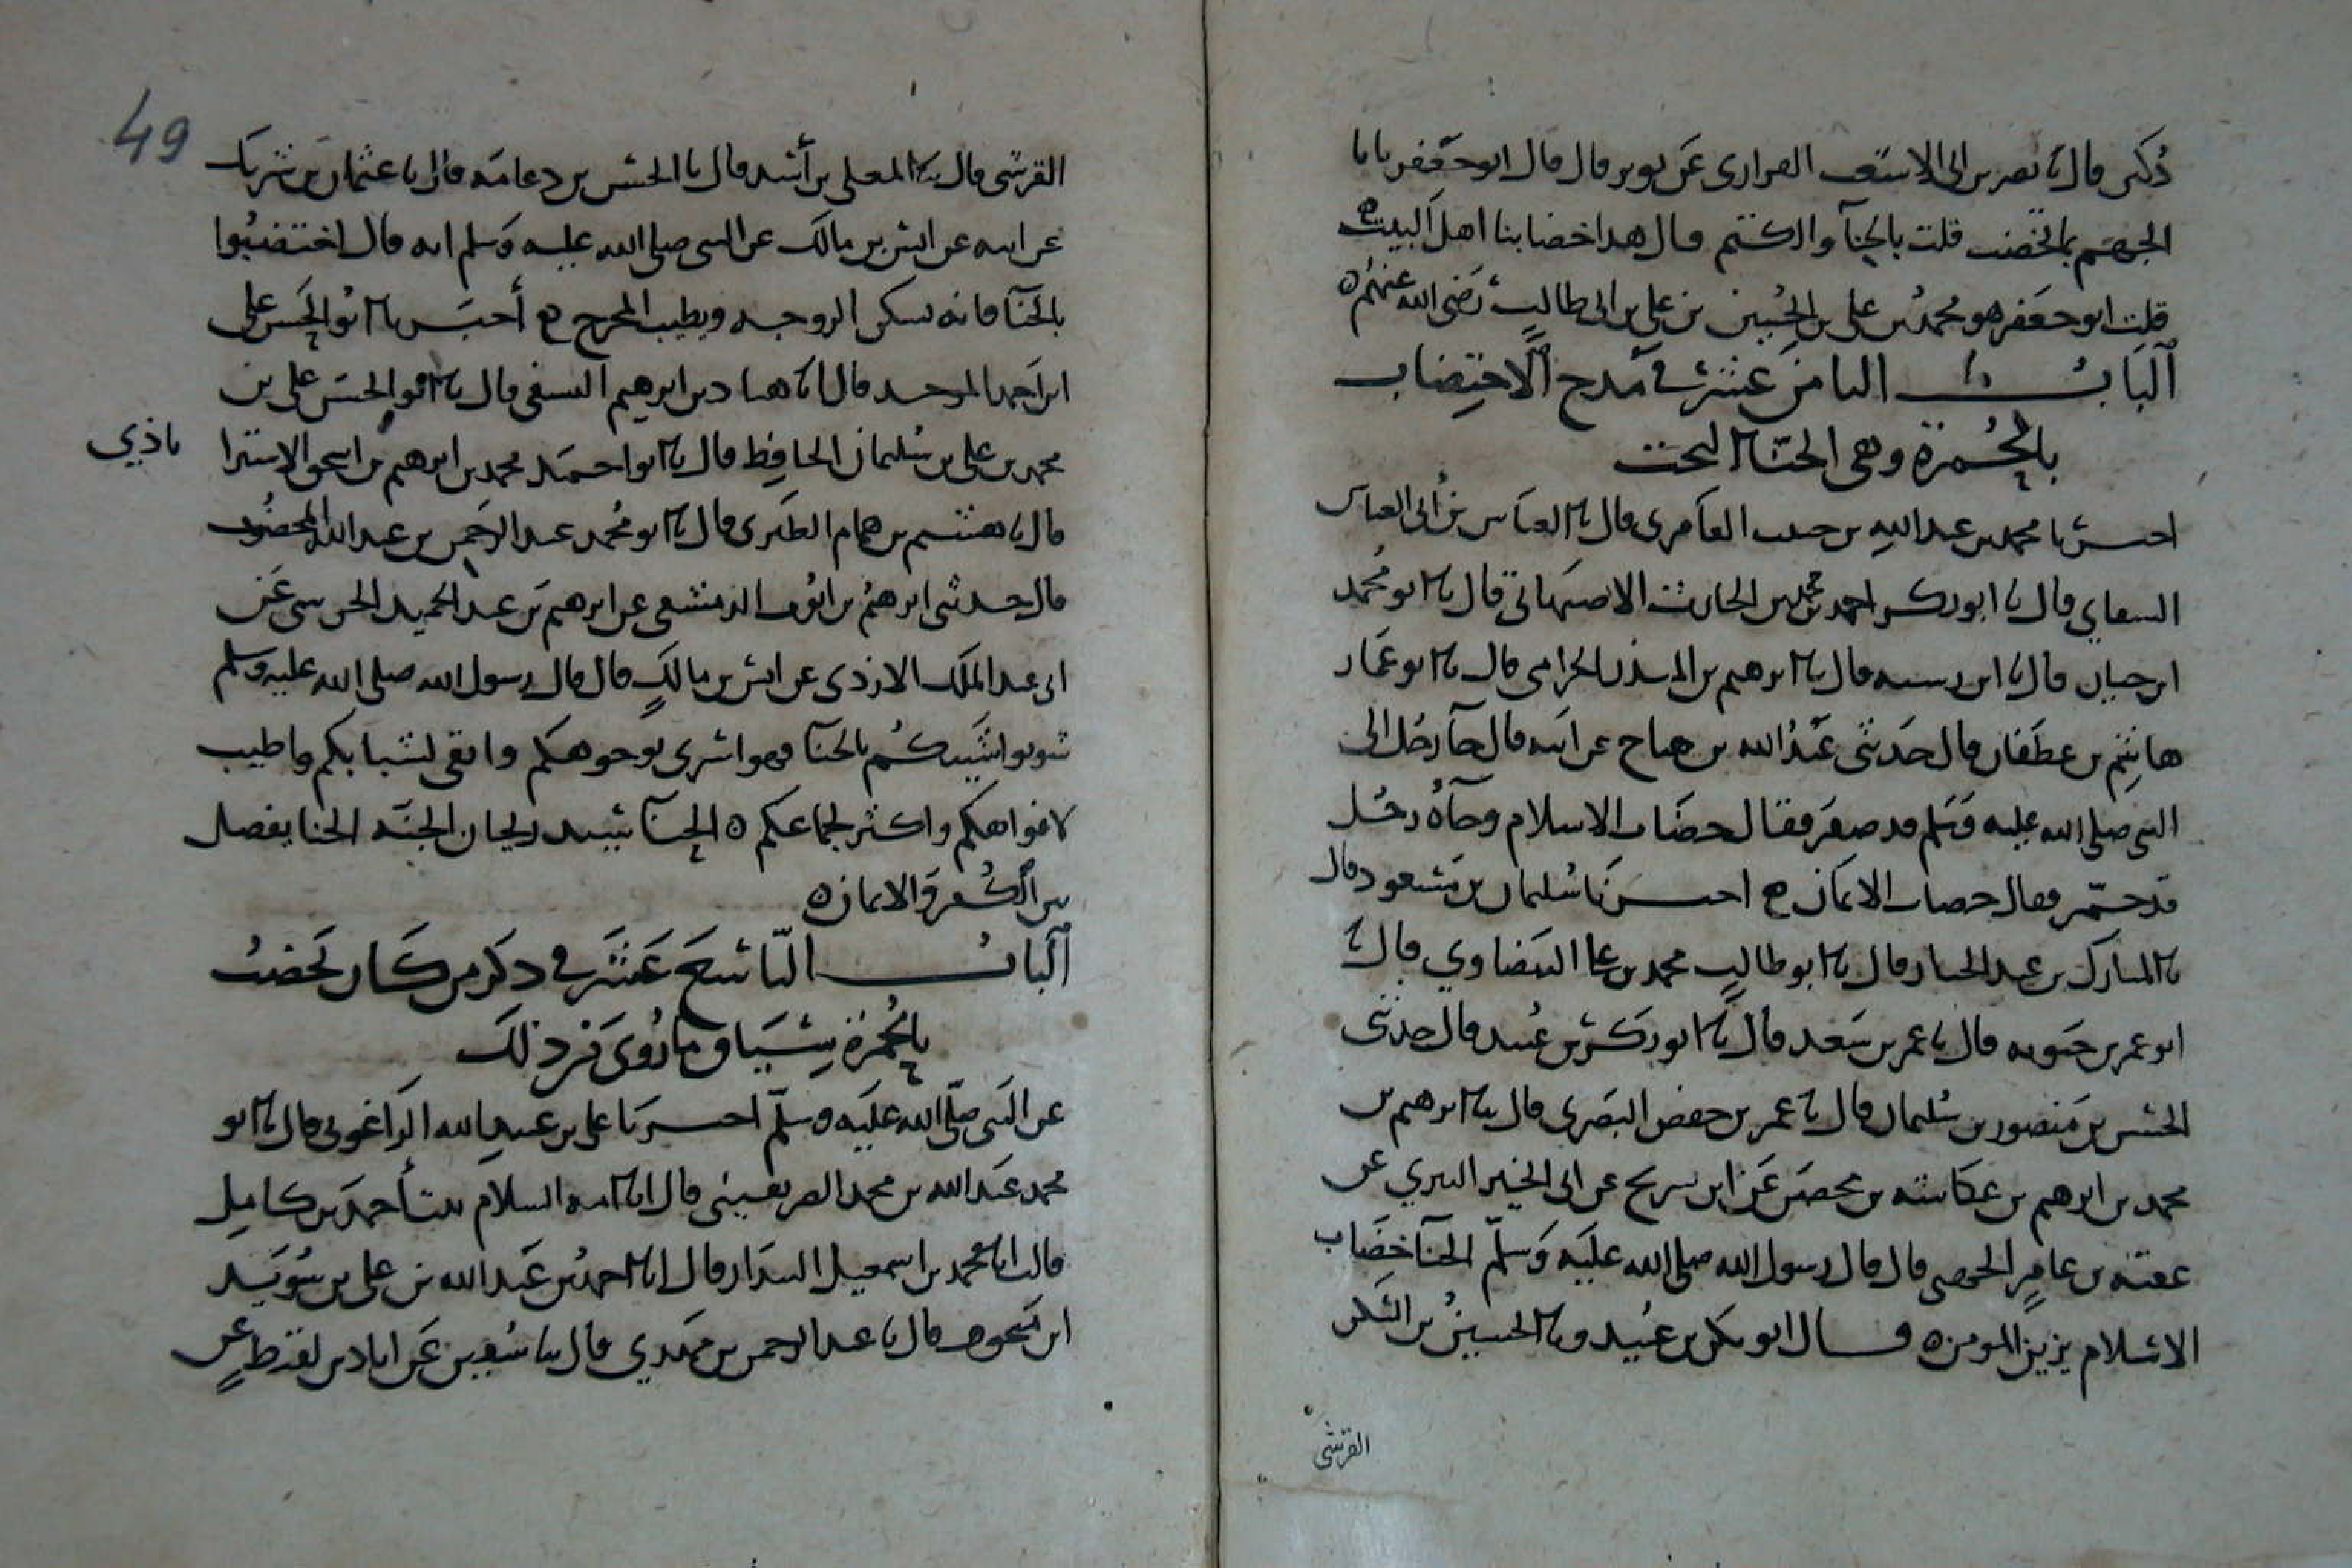 ذكر قال نا نصر بن ابي الاشعث الفزاري عن ثوير قال قال ابو جعفر يا با
الجهم بما تخضب قلت بالحنآ والكتم قال هذا خضابنا اهل البيت
قلت ابو جعفر هو محمد بن علي بن الحسين بن علي بن ابي طالب رضي الله عنهم
الباب الثامن عشر في مدح الاختضاب
بالحمرة وهي الحنا البحت
اخبرنا محمد بن عبد الله بن حبيب العامري قال نا العباس بن ابي العباس
قال نا ابو بكر احمد بن محمد بن الحارث الاصبهاني قال نا ابو محمد
ابن حيان قال نا ابن رسته قال نا ابرهيم بن المنذر الحزامي قال نا ابو عمار
هاشم بن غطفان قال حدثني عبد الله بن هداج عن ابيه قال جآ رجل الى
النبي صلى الله عليه وسلم قد صفر فقال خضاب الاسلام وجآه رجل
قد حمر فقال خضاب الايمان ح اخبرنا سليمان بن مسعود قال
نا المبارك بن عبد الجبار قال نا ابو طالب محمد بن علي البيضاوي قال نا
ابو عمر بن حيويه قال نا عمر بن سعد قال نا ابو بكر بن عبيد قال حدثني
الحسن بن منصور بن سليمان قال نا عمر بن حفص البصري قال نا ابرهيم بن
محمد بن ابرهيم بن عكاشه بن محصن عن ابن سريج عن ابي الخير عن
عقبه بن عامر الجهني قال قال رسول الله صلى الله عليه وسلم الحنآ خضاب
الاسلام يزين المومن وقال ابو بكر بن عبيد ونا الحسين بن السكن
القرشي
القرشي قال نا المعلى بن أسد قال نا الحسن بن دعامه قال نا عثمان بن شريك
عن ابيه عن انس بن مالك عن النبي صلى الله عليه وسلم انه قال اختضبوا
بالحنآ فانه يسكن الروجه ويطيب المخرج ح أخبرنا ابو الحسن علي
ابن احمد الموحد قال انا هناد بن ابرهيم النسفي قال نا ابو الحسن علي بن
محمد بن علي بن سليمان الحافظ قال نا ابو احمد محمد بن ابرهيم بن اسحق الاسترا
باذي
قال نا هشيم بن همام الطبري قال نا ابو محمد عبد الرحمن بن عبد الله المخضوب
قال حدثني ابرهيم بن ايوب الدمشقي عن ابرهيم بن عبد الحميد الجرشي عن
ابي عبد الملك الازدي عن انس بن مالك قال قال رسول الله صلى الله عليه وسلم
شوبوا شيبكم بالحنآ فهو اسرى لوجوهكم وانقى لشبابكم واطيب
لافواهكم واكثر لجماعكم الحنآ سيد ريحان الجنه الحنا يفصل
بين الكفر والايمان
الباب التاسع عشر في ذكر من كان يخضب
بالحمرة سياق ما روي من ذلك
عن النبي صلى الله عليه وسلم اخبرنا علي بن عبيد الله الزاغوني قال نا ابو
محمد عبد الله بن محمد الصريفيني قال انا امة السلام بنت أحمد بن كامل
قالت انا محمد بن اسمعيل البندار قال انا احمد بن عبد الله بن علي بن سويد
ابن منجوف قال نا عبد الرحمن بن مهدي قال نا سفين عن اياد بن لقيط عن
49